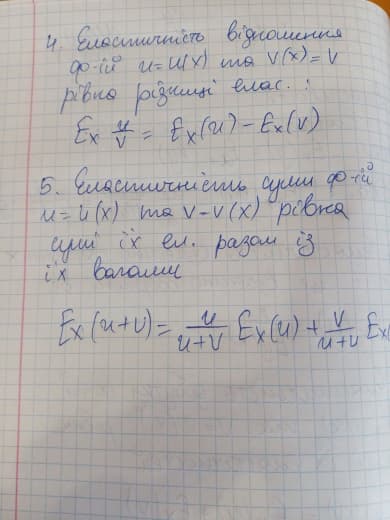 4. Еластичність відношення
ф-ій u=u(x) та v(x)=v
рівна різниці елас. :
Eₓ u/v = Eₓ(u) - Eₓ(v)
5. Еластичність суми ф-ій
u=u(x) та v-v(x) рівна
сумі їх ел. разом із
їх вагами
Eₓ(u+v)= u/u+v Eₓ(u) + v/u+v Eₓ(